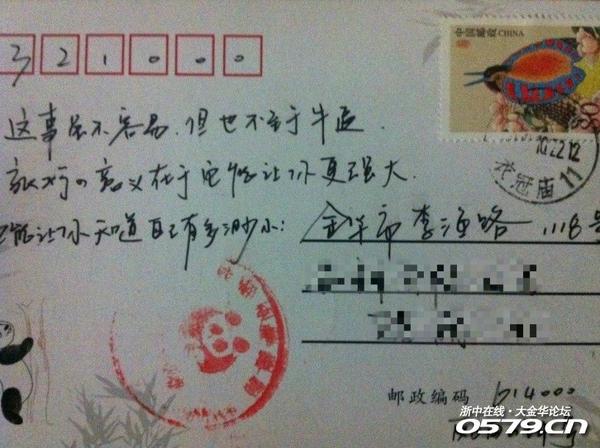 321000
中国邮政 CHINA
80
10.22.12
衣冠庙
11
这事虽不容易,但也不至于牛逼.
旅行的意义在于它能让你更强大.
也能让你知道自己有多渺小:
金华市李渔路1118号
邮政编码 614000
浙中在线·大金华论坛
0579.CN